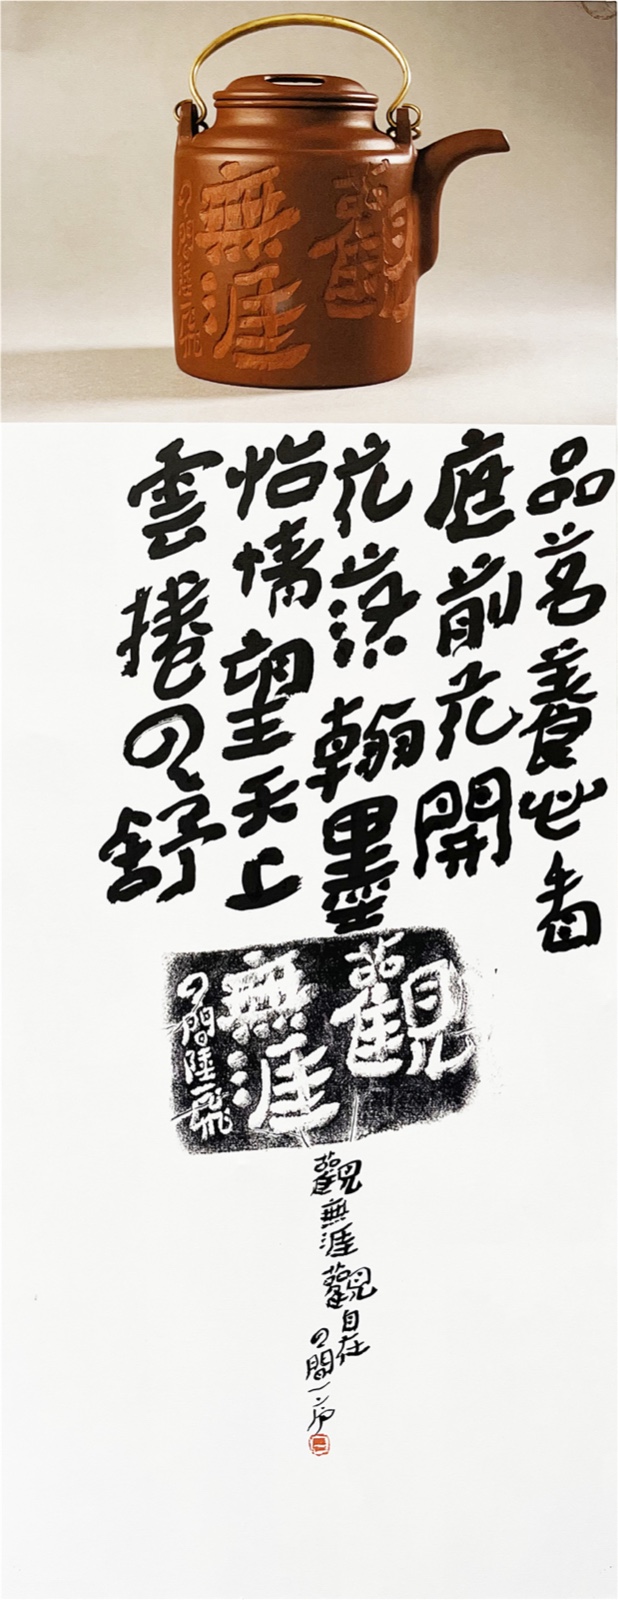 觀
無涯
云間陸一飛
品茗養心看
庭前花開
花落翰墨
怡情望天上
雲捲云舒
觀
無涯
云間陸一飛
觀無涯觀自在
云間一